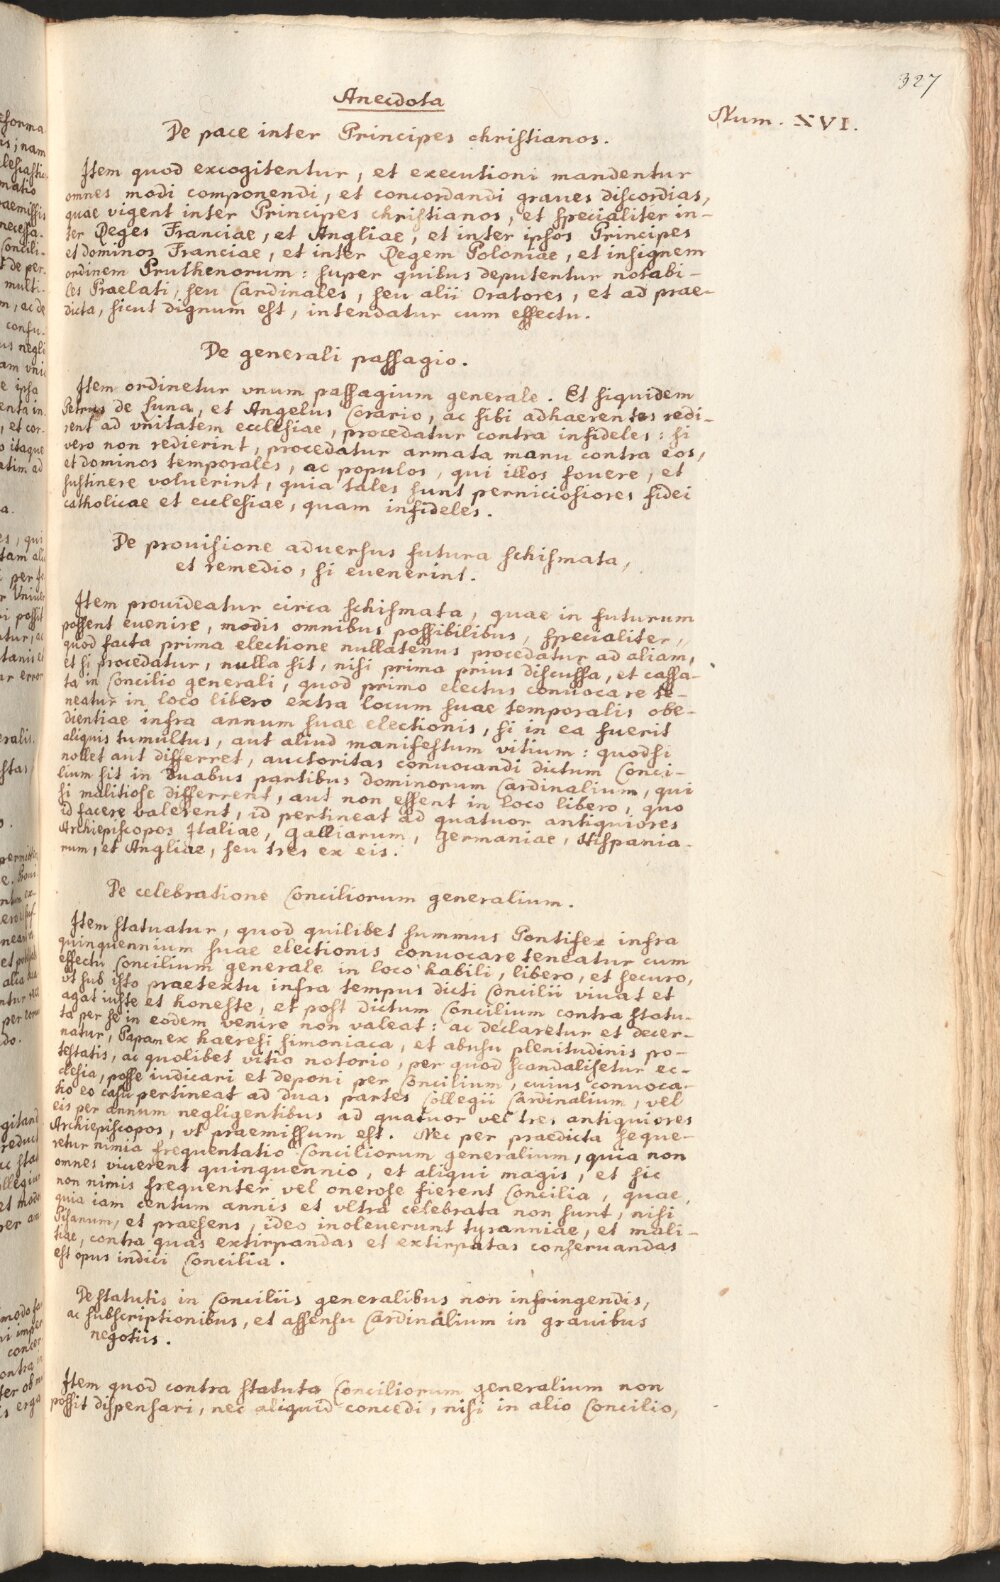 327
Anecdota
Num. XVI.
De pace inter Principes christianos.
Item quod excogitentur, et executioni mandentur
omnes modi componendi, et concordandi graues discordias,
quae vigent inter Principes christianos, et specialiter in-
ter Reges Franciae, et Angliae, et inter ipsos Principes
et dominos Franciae, et inter Regem Poloniae, et insignem
ordinem Pruthenorum: super quibus deputentur notabi-
les Praelati, seu Cardinales, seu alii Oratores, et ad prae-
dicta, sicut dignum est, intendatur cum effectu.
De generali passagio.
Item ordinetur vnum passagium generale. Et siquidem
Petrus de Luna, et Angelus Corario, ac sibi adhaerentes redi-
rent ad vnitatem ecclesiae, procedatur contra infideles: si
vero non redierint, procedatur armata manu contra eos,
et dominos temporales, ac populos, qui illos fouere, et
sustinere voluerint, quia tales sunt perniciosiores fidei
catholicae et ecclesiae, quam infideles.
De prouisione aduersus futura schismata,
et remedio, si euenerint.
Item prouideatur circa schismata, quae in futurum
possent euenire, modis omnibus possibilibus, specialiter,
quod facta prima electione nullatenus procedatur ad aliam,
et si procedatur, nulla sit, nisi prima prius discussa, et cassa-
ta in Concilio generali, quod primo electus conuocare te-
neatur in loco libero extra locum suae temporalis obe-
dientiae infra annum suae electionis, si in ea fuerit
aliquis tumultus, aut aliud manifestum vitium: quodsi
nollet aut differret, auctoritas conuocandi dictum Conci-
lium sit in duabus partibus dominorum Cardinalium, qui
si malitiose differrent, aut non essent in loco libero, quo
id facere valerent, id pertineat ad quatuor antiquiores
Archiepiscopos Italiae, Galliarum, Germaniae, Hispania-
rum, et Angliae, seu tres ex eis.
De celebratione Conciliorum generalium.
Item statuatur, quod quilibet summus Pontifex infra
quinquennium suae electionis conuocare teneatur cum
effectu Concilium generale in loco habili, libero, et securo,
vt sub isto praetextu infra tempus dicti Concilii viuat et
agat iuste et honeste, et post dictum Concilium contra statu-
ta per se in eodem venire non valeat: ac declaretur et decer-
natur, Papam ex haeresi simoniaca, et abusu plenitudinis po-
testatis, ac quolibet vitio notorio, per quod scandalisetur ec-
clesia, posse iudicari et deponi per Concilium, cuius conuoca-
tio eo casu pertineat ad duas partes Collegii Cardinalium, vel
eis per annum negligentibus ad quatuor vel tres antiquiores
Archiepiscopos, vt praemissum est. Nec per praedicta seque-
retur nimia frequentatio Conciliorum generalium, quia non
omnes viuerent quinquennio, et aliqui magis, et sic
non nimis frequenter vel onerose fierent Concilia, quae,
quia iam centum annis et vltra celebrata non sunt, nisi
Pisanum, et praesens, ideo inoleuerunt tyranniae, et mali-
tiae, contra quas extirpandas et extirpatas conseruandas
est opus indici Concilia.
De statutis in Conciliis generalibus non infringendis,
ac subscriptionibus, et assensu Cardinalium in grauibus
negotiis.
Item quod contra statuta Conciliorum generalium non
possit dispensari, nec aliquid concedi, nisi in alio Concilio,